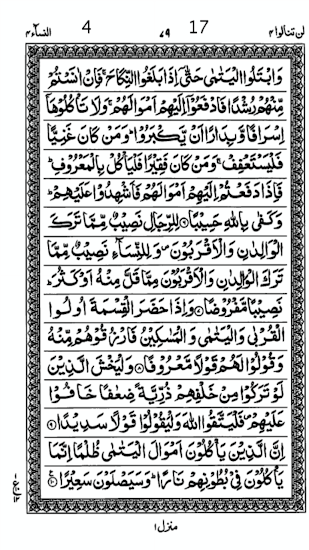 النساۤء ٤ 4 ٧٩ 17 لن تنالوا ٤
وَابْتَلُوا الْيَتٰمٰى حَتّٰۤى اِذَا بَلَغُوا النِّكَاحَ ۚ فَاِنْ اٰنَسْتُمْ
مِّنْهُمْ رُشْدًا فَادْفَعُوْۤا اِلَيْهِمْ اَمْوَالَهُمْ ۚ وَلَا تَاْكُلُوْهَاۤ
اِسْرَافًا وَّبِدَارًا اَنْ يَّكْبَرُوْا ؕ وَمَنْ كَانَ غَنِيًّا
فَلْيَسْتَعْفِفْ ۚ وَمَنْ كَانَ فَقِيْرًا فَلْيَاْكُلْ بِالْمَعْرُوْفِ ؕ
فَاِذَا دَفَعْتُمْ اِلَيْهِمْ اَمْوَالَهُمْ فَاَشْهِدُوْا عَلَيْهِمْ ؕ
وَكَفٰى بِاللّٰهِ حَسِيْبًا ۝٦ لِلرِّجَالِ نَصِيْبٌ مِّمَّا تَرَكَ
الْوَالِدٰنِ وَالْاَقْرَبُوْنَ ۪ وَلِلنِّسَآءِ نَصِيْبٌ مِّمَّا
تَرَكَ الْوَالِدٰنِ وَالْاَقْرَبُوْنَ مِمَّا قَلَّ مِنْهُ اَوْ كَثُرَ ؕ
نَصِيْبًا مَّفْرُوْضًا ۝٧ وَاِذَا حَضَرَ الْقِسْمَةَ اُولُوا
الْقُرْبٰى وَالْيَتٰمٰى وَالْمَسٰكِيْنُ فَارْزُقُوْهُمْ مِّنْهُ
وَقُوْلُوْا لَهُمْ قَوْلًا مَّعْرُوْفًا ۝٨ وَلْيَخْشَ الَّذِيْنَ
لَوْ تَرَكُوْا مِنْ خَلْفِهِمْ ذُرِّيَّةً ضِعٰفًا خَافُوْا
عَلَيْهِمْ ۪ فَلْيَتَّقُوا اللّٰهَ وَلْيَقُوْلُوْا قَوْلًا سَدِيْدًا ۝٩
اِنَّ الَّذِيْنَ يَاْكُلُوْنَ اَمْوَالَ الْيَتٰمٰى ظُلْمًا اِنَّمَا
يَاْكُلُوْنَ فِيْ بُطُوْنِهِمْ نَارًا ؕ وَسَيَصْلَوْنَ سَعِيْرًا ۝١٠
منزل ١